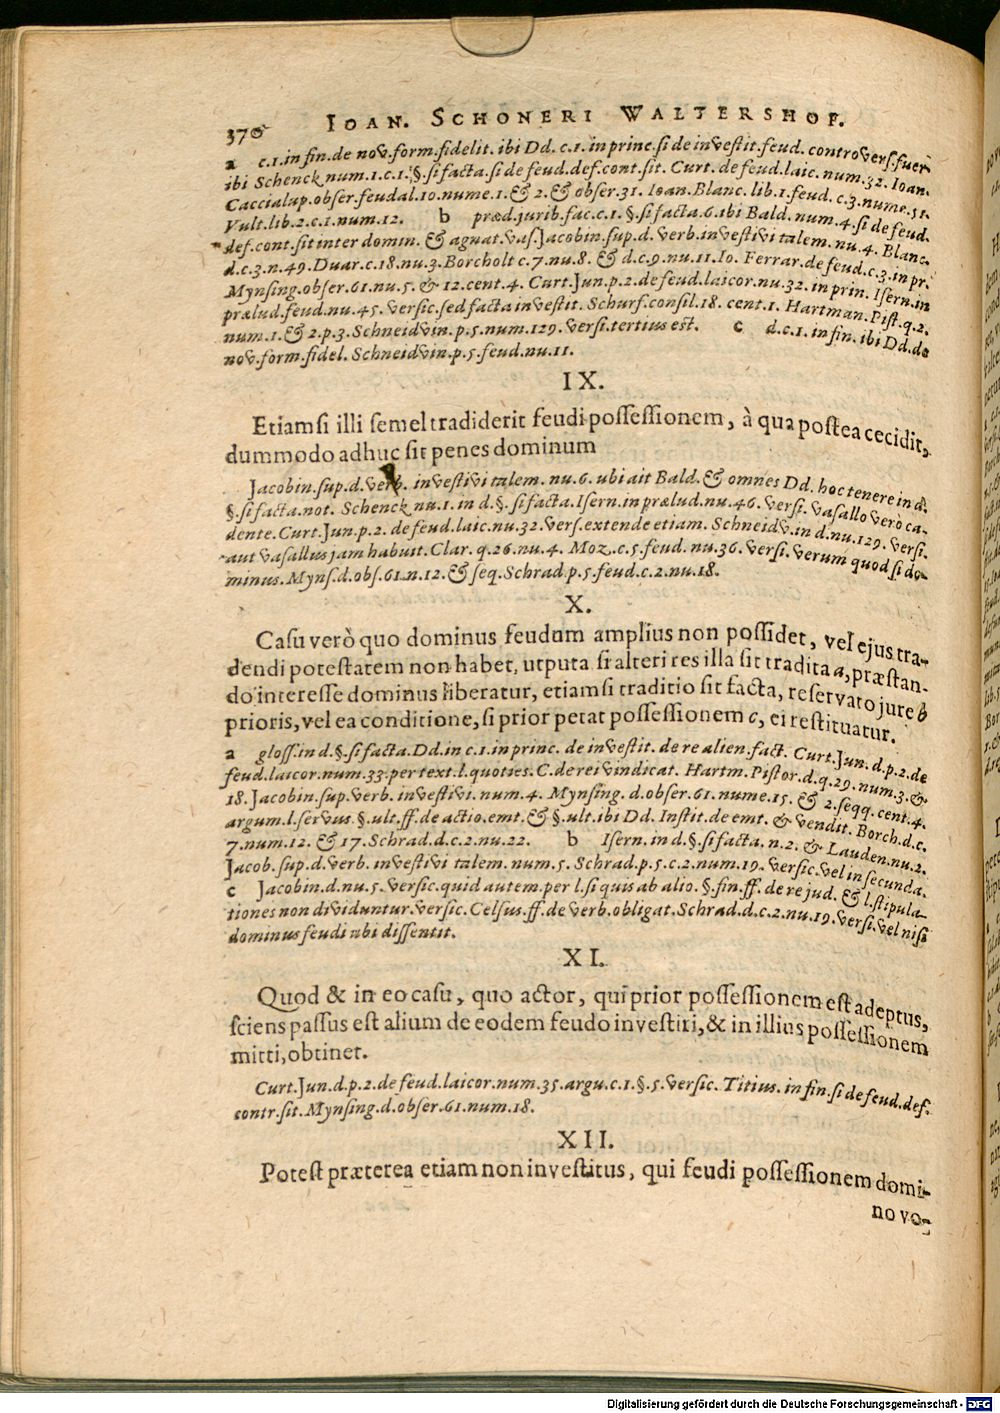 370 IOAN. SCHONERI WALTERSHOF.
a c.1. in fin. de nov. form. fidelit. ibi Dd. c.1. in princ. si de investit. feud. controvers. fuer
ibi Schenck num. 1. c.1. §. si facta. si de feud. def. cont. sit. Curt. de feud. laic. num. 32. Ioan.
Caccialup. obser. feudal. 10. nume. 1. & 2. & obser. 31. Ioan. Blanc. lib. 1. feud. c. 3. nume. 51.
Vult. lib. 2. c. 1. num. 12. b præd. jurib. fac. c. 1. §. si facta. 6. ibi Bald. num. 4. si de feud.
def. cont. sit inter domin. & agnat. vas. Jacobin. sup. d. verb. investivi talem. nu. 4. Blanc.
d. c. 3. n. 49. Duar. c. 18. nu. 3. Borcholt c. 7. nu. 8. & d. c. 9. nu. 11. Io. Ferrar. de feud. c. 3. in pr.
Mynsing. obser. 61. nu. 5. & 12. cent. 4. Curt. Jun. p. 2. de feud. laicor. nu. 32. in prin. Isern. in
prælud. feud. nu. 45. versic. sed facta investit. Schurf. consil. 18. cent. 1. Hartman. Pist. q. 2.
num. 1. & 2. p. 3. Schneidvvin. p. 5. num. 129. versi. tertius est. c d. c. 1. in fin. ibi Dd. de
nov. form. fidel. Schneidvvin. p. 5. feud. nu. 11.
IX.
Etiamsi illi semel tradiderit feudi possessionem, à qua postea cecidit,
dummodo adhuc sit penes dominum
Jacobin. sup. d. verb. investivi talem. nu. 6. ubi ait Bald. & omnes Dd. hoc tenere in d.
§. si facta. not. Schenck nu. 1. in d. §. si facta. Isern. in prælud. nu. 46. versi. vasallo verò ca-
dente. Curt. Jun. p. 2. de feud. laic. nu. 32. vers. extende etiam. Schneidvv. in d. nu. 129. versi.
aut vasallus jam habuit. Clar. q. 26. nu. 4. Moz. c. 5. feud. nu. 36. versi. verum quod si do-
minus. Myns. d. obs. 61. n. 12. & seq. Schrad. p. 5. feud. c. 2. nu. 18.
X.
Casu verò quo dominus feudum amplius non possidet, vel ejus tra-
dendi potestatem non habet, utputa si alteri res illa sit tradita a, præstan-
do interesse dominus liberatur, etiamsi traditio sit facta, reservato jure b
prioris, vel ea conditione, si prior petat possessionem c, ei restituatur.
a gloss. in d. §. si facta. Dd. in c. 1. in princ. de investit. de re alien. fact. Curt. Jun. d. p. 2. de
feud. laicor. num. 33. per text. l. quoties. C. de rei vindicat. Hartm. Pistor. d. q. 29. num. 3. &
18. Jacobin. sup. verb. investivi. num. 4. Mynsing. d. obser. 61. nume. 15. & 2. seqq. cent. 4.
argum. l. servus. §. ult. ff. de actio. emt. & §. ult. ibi Dd. Instit. de emt. & vendit. Borch. d. c.
7. num. 12. & 17. Schrad. d. c. 2. nu. 22. b Isern. in d. §. si facta. n. 2. & Lauden. nu. 2.
Jacob. sup. d. verb. investivi talem. num. 5. Schrad. p. 5. c. 2. num. 19. versic. vel in secunda.
c Jacobin. d. nu. 5. versic. quid autem. per l. si quis ab alio. §. fin. ff. de re jud. & l. stipula-
tiones non dividuntur. versic. Celsus. ff. de verb. obligat. Schrad. d. c. 2. nu. 19. versi. vel nisi
dominus feudi ubi dissentit.
XI.
Quod & in eo casu, quo actor, qui prior possessionem est adeptus,
sciens passus est alium de eodem feudo investiri, & in illius possessionem
mitti, obtinet.
Curt. Jun. d. p. 2. de feud. laicor. num. 35. argu. c. 1. §. 5. versic. Titius. in fin. si de feud. def.
contr. sit. Mynsing. d. obser. 61. num. 18.
XII.
Potest præterea etiam non investitus, qui feudi possessionem domi-
no vo-
Digitalisierung gefördert durch die Deutsche Forschungsgemeinschaft - DFG